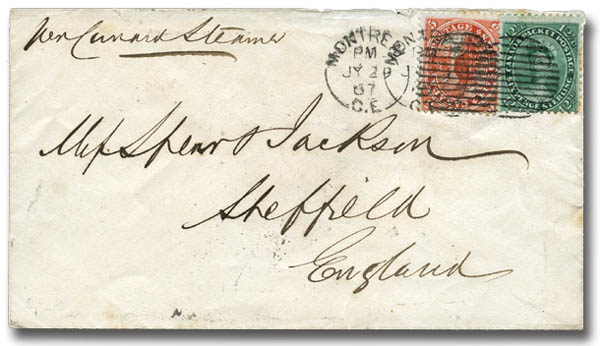 per Cunard Steamer
MONTREAL
PM
JY 29
67
C.E.
CANADA PACKET POSTAGE
Messrs Spear & Jackson
Sheffield
England